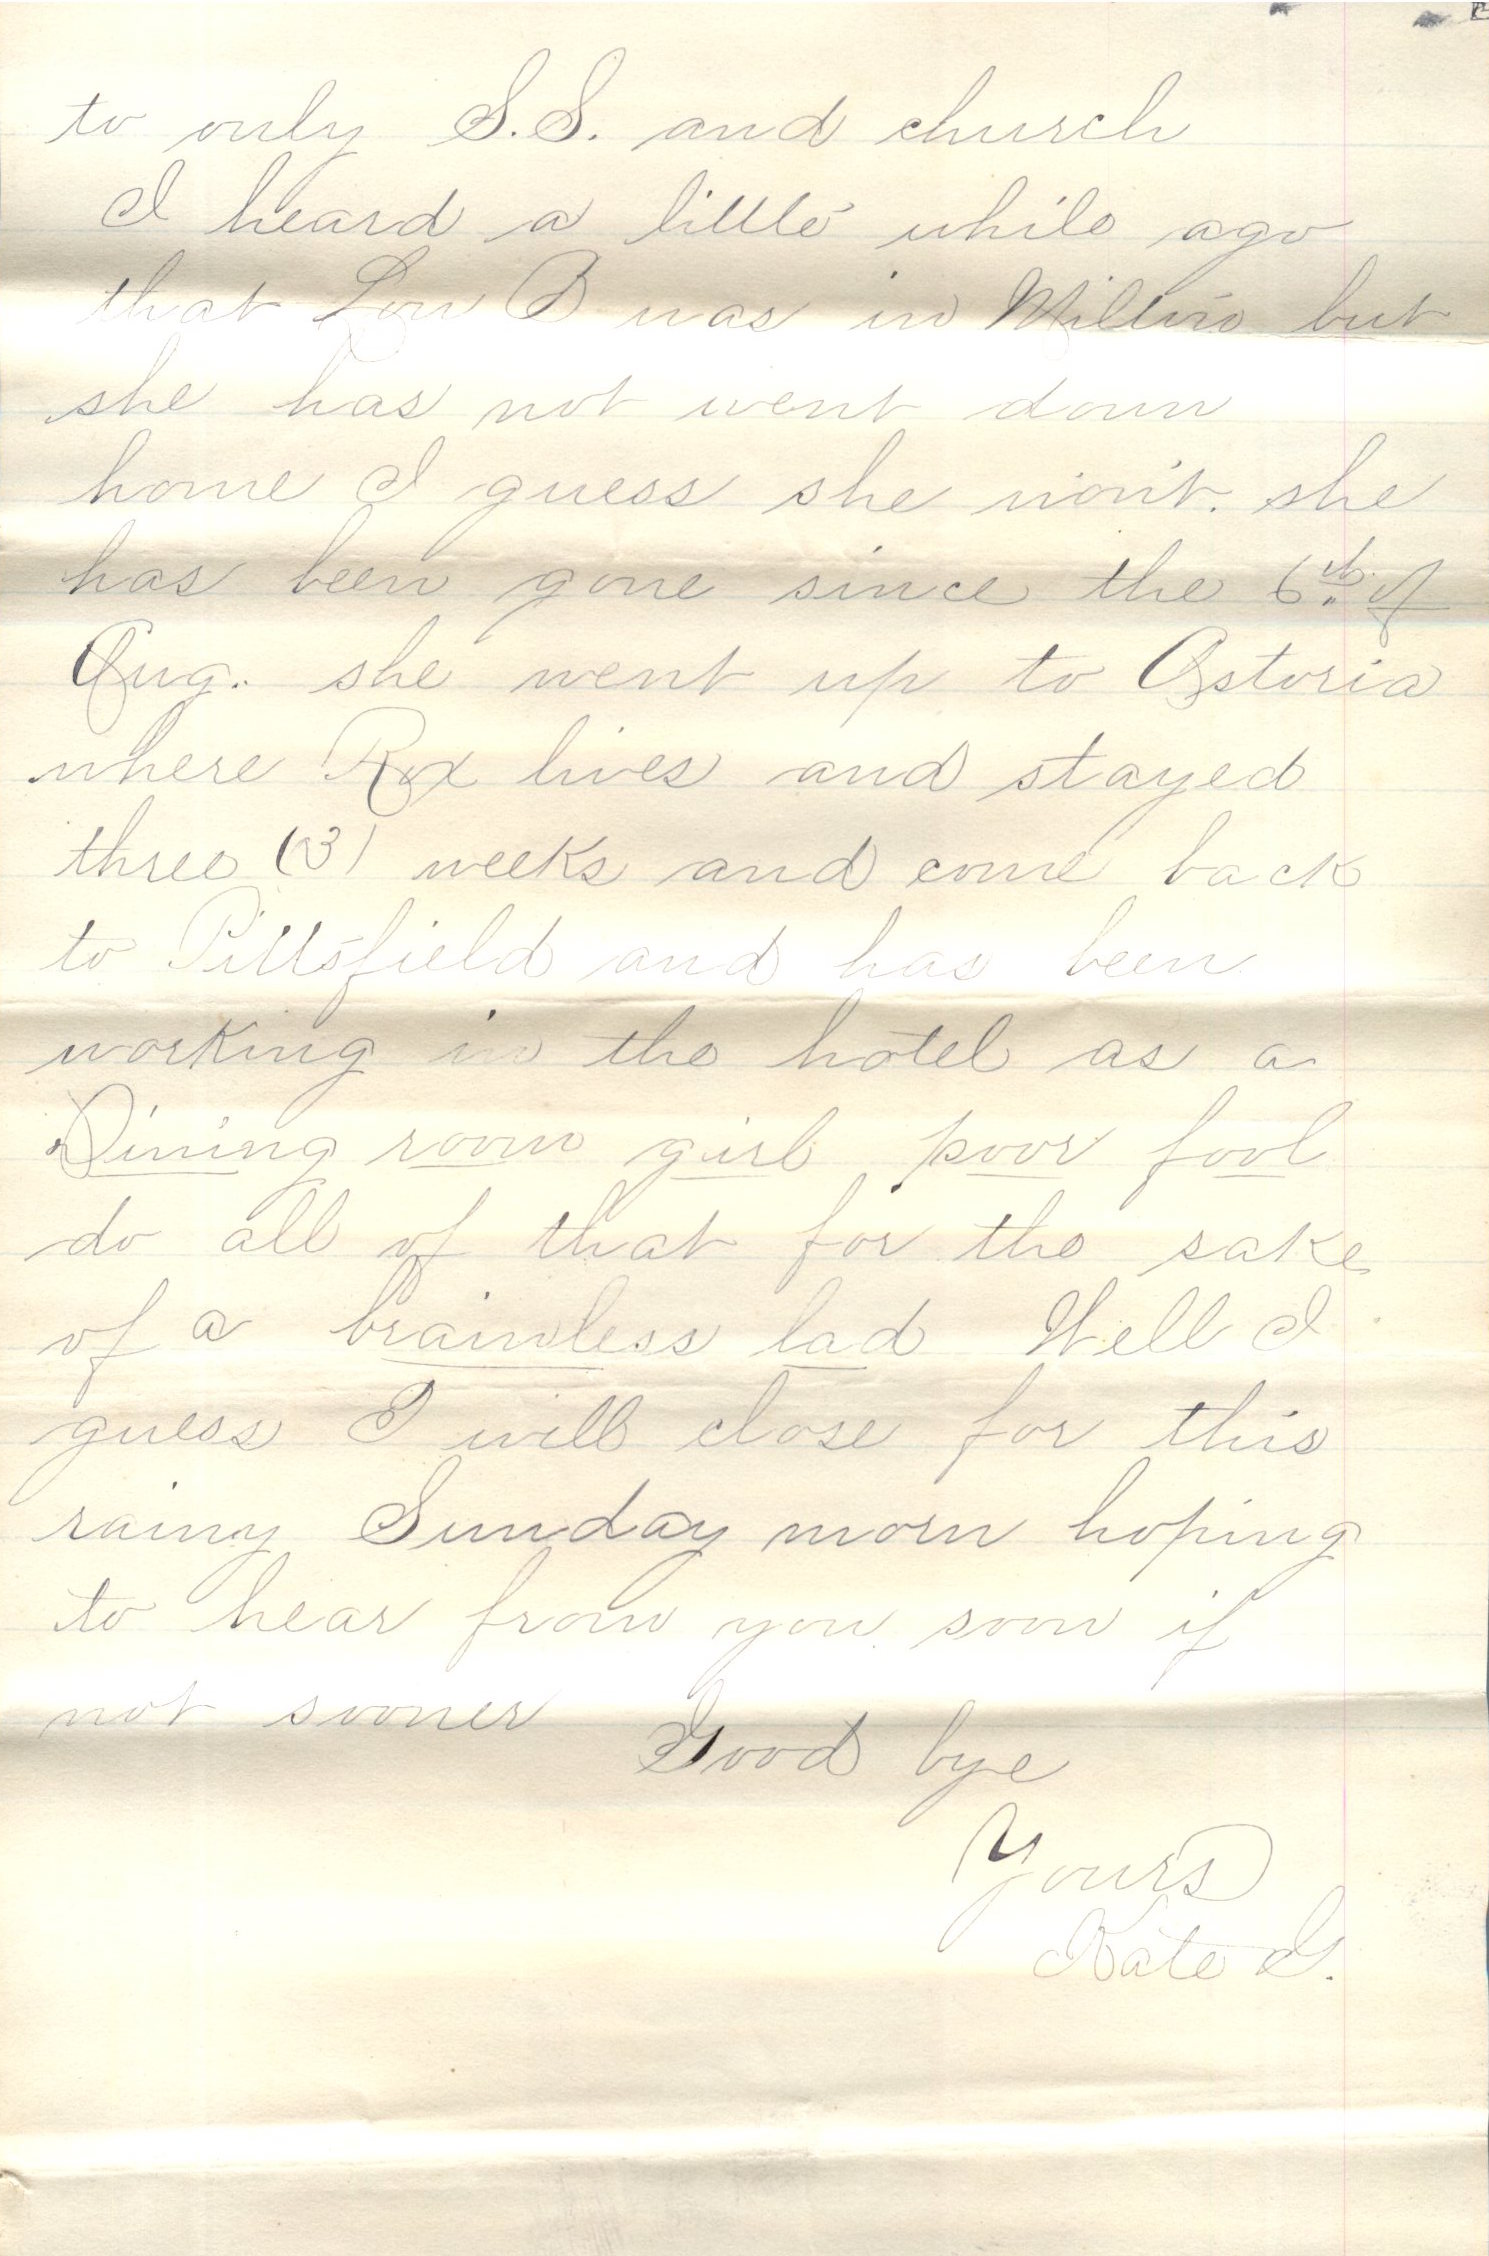 to only S.S. and church
I heard a little while ago
that Lou B was in Milton but
she has not went down
home I guess she won't. she
has been gone since the 6th of
Aug. she went up to Astoria
where Rod lives and stayed
three (3) weeks and come back
to Pittsfield and has been
working in the hotel as a
Dining room girl poor fool
do all of that for the sake
of a brainless lad Well I
guess I will close for this
rainy Sunday morn hoping
to hear from you soon if
not sooner Good bye
Yours
Kate G.